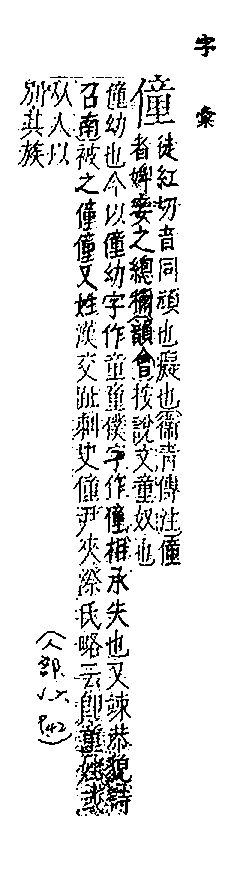 字彙
僮徒紅切音同頑也癡也衞青傳注僮
者婢妾之總稱韻會按說文童奴也
僮幼也今以僮幼字作童童僕字作僮相承失也又竦恭貌詩
召南被之僮僮又姓漢交趾刺史僮尹夾漈氏略云卽童姓或
从人以
別其族
(人部